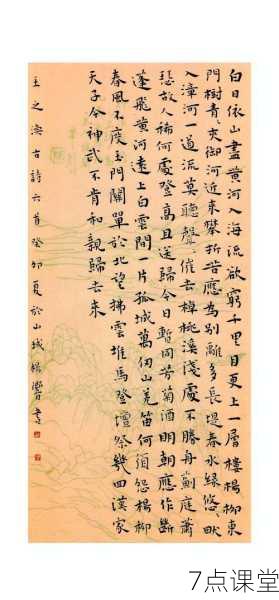 白日依山盡黃河入海流欲窮千里目更上一層樓楊柳東
門樹青〻夾御河近來攀折苦應為別離多長堤春水綠悠〻畎
入漳河一道流莫聽聲〻催去棹桃溪淺處不勝舟薊庭蕭
瑟故人稀何處登高且送歸今日暫同芳菊酒明朝應作斷
蓬飛黃河遠上白雲間一片孤城萬仞山羌笛何須怨楊柳
春風不度玉門關單於北望拂雲堆馬登壇祭幾回漢家
天子今神武不肯和親歸去來
王之渙古詩六首癸卯夏於山城楊書
7点课堂